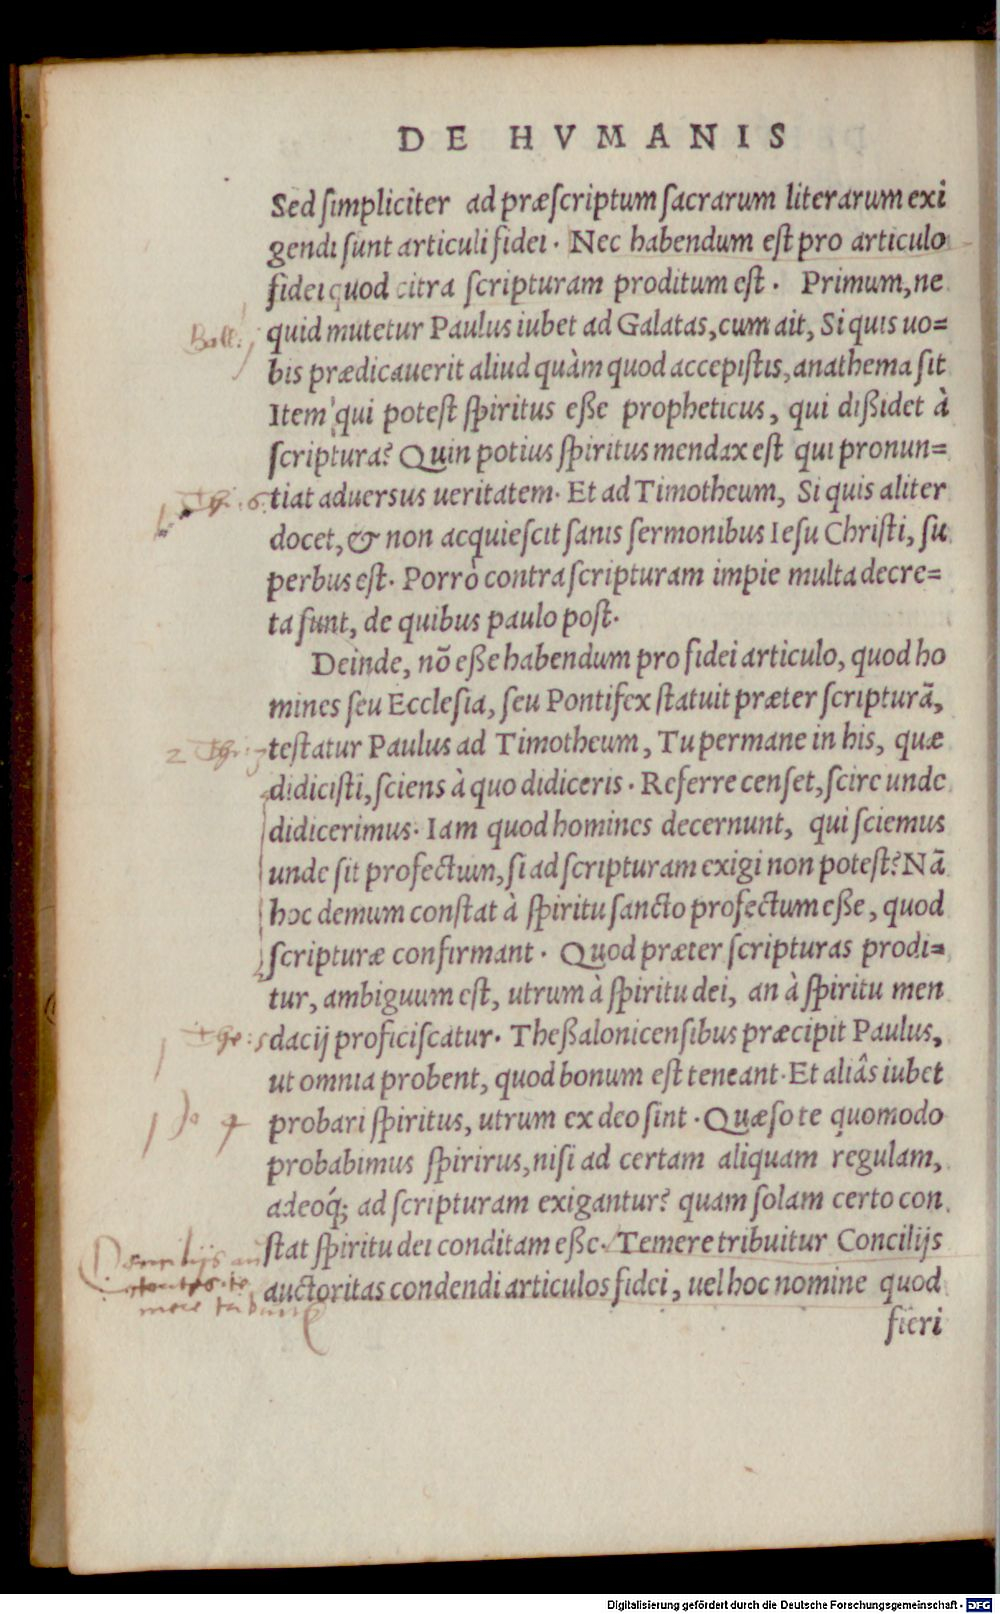 DE HVMANIS
Sed simpliciter ad præscriptum sacrarum literarum exi
gendi sunt articuli fidei. Nec habendum est pro articulo
fidei quod citra scripturam proditum est. Primum, ne
quid mutetur Paulus iubet ad Galatas, cum ait, Si quis uo=
bis prædicauerit aliud quàm quod accepistis, anathema sit
Item qui potest spiritus eße propheticus, qui dißidet à
scriptura? Quin potius spiritus mendax est qui pronun=
tiat aduersus ueritatem. Et ad Timotheum, Si quis aliter
docet, & non acquiescit sanis sermonibus Iesu Christi, su
perbus est. Porrò contra scripturam impie multa decre=
ta sunt, de quibus paulo post.
Deinde, nõ eße habendum pro fidei articulo, quod ho
mines seu Ecclesia, seu Pontifex statuit præter scripturã,
testatur Paulus ad Timotheum, Tu permane in his, quæ
didicisti, sciens à quo didiceris. Referre censet, scire unde
didicerimus. Iam quod homines decernunt, qui sciemus
unde sit profectum, si ad scripturam exigi non potest? Nã
hoc demum constat à spiritu sancto profectum eße, quod
scripturæ confirmant. Quod præter scripturas prodi=
tur, ambiguum est, utrum à spiritu dei, an à spiritu men
dacij proficiscatur. Theßalonicensibus præcipit Paulus,
ut omnia probent, quod bonum est teneant. Et aliâs iubet
probari spiritus, utrum ex deo sint. Quæso te quomodo
probabimus spirirus, nisi ad certam aliquam regulam,
adeoq́; ad scripturam exigantur? quam solam certo con
stat spiritu dei conditam eße. Temere tribuitur Concilijs
auctoritas condendi articulos fidei, uel hoc nomine quod
fieri
Digitalisierung gefördert durch die Deutsche Forschungsgemeinschaft - DFG